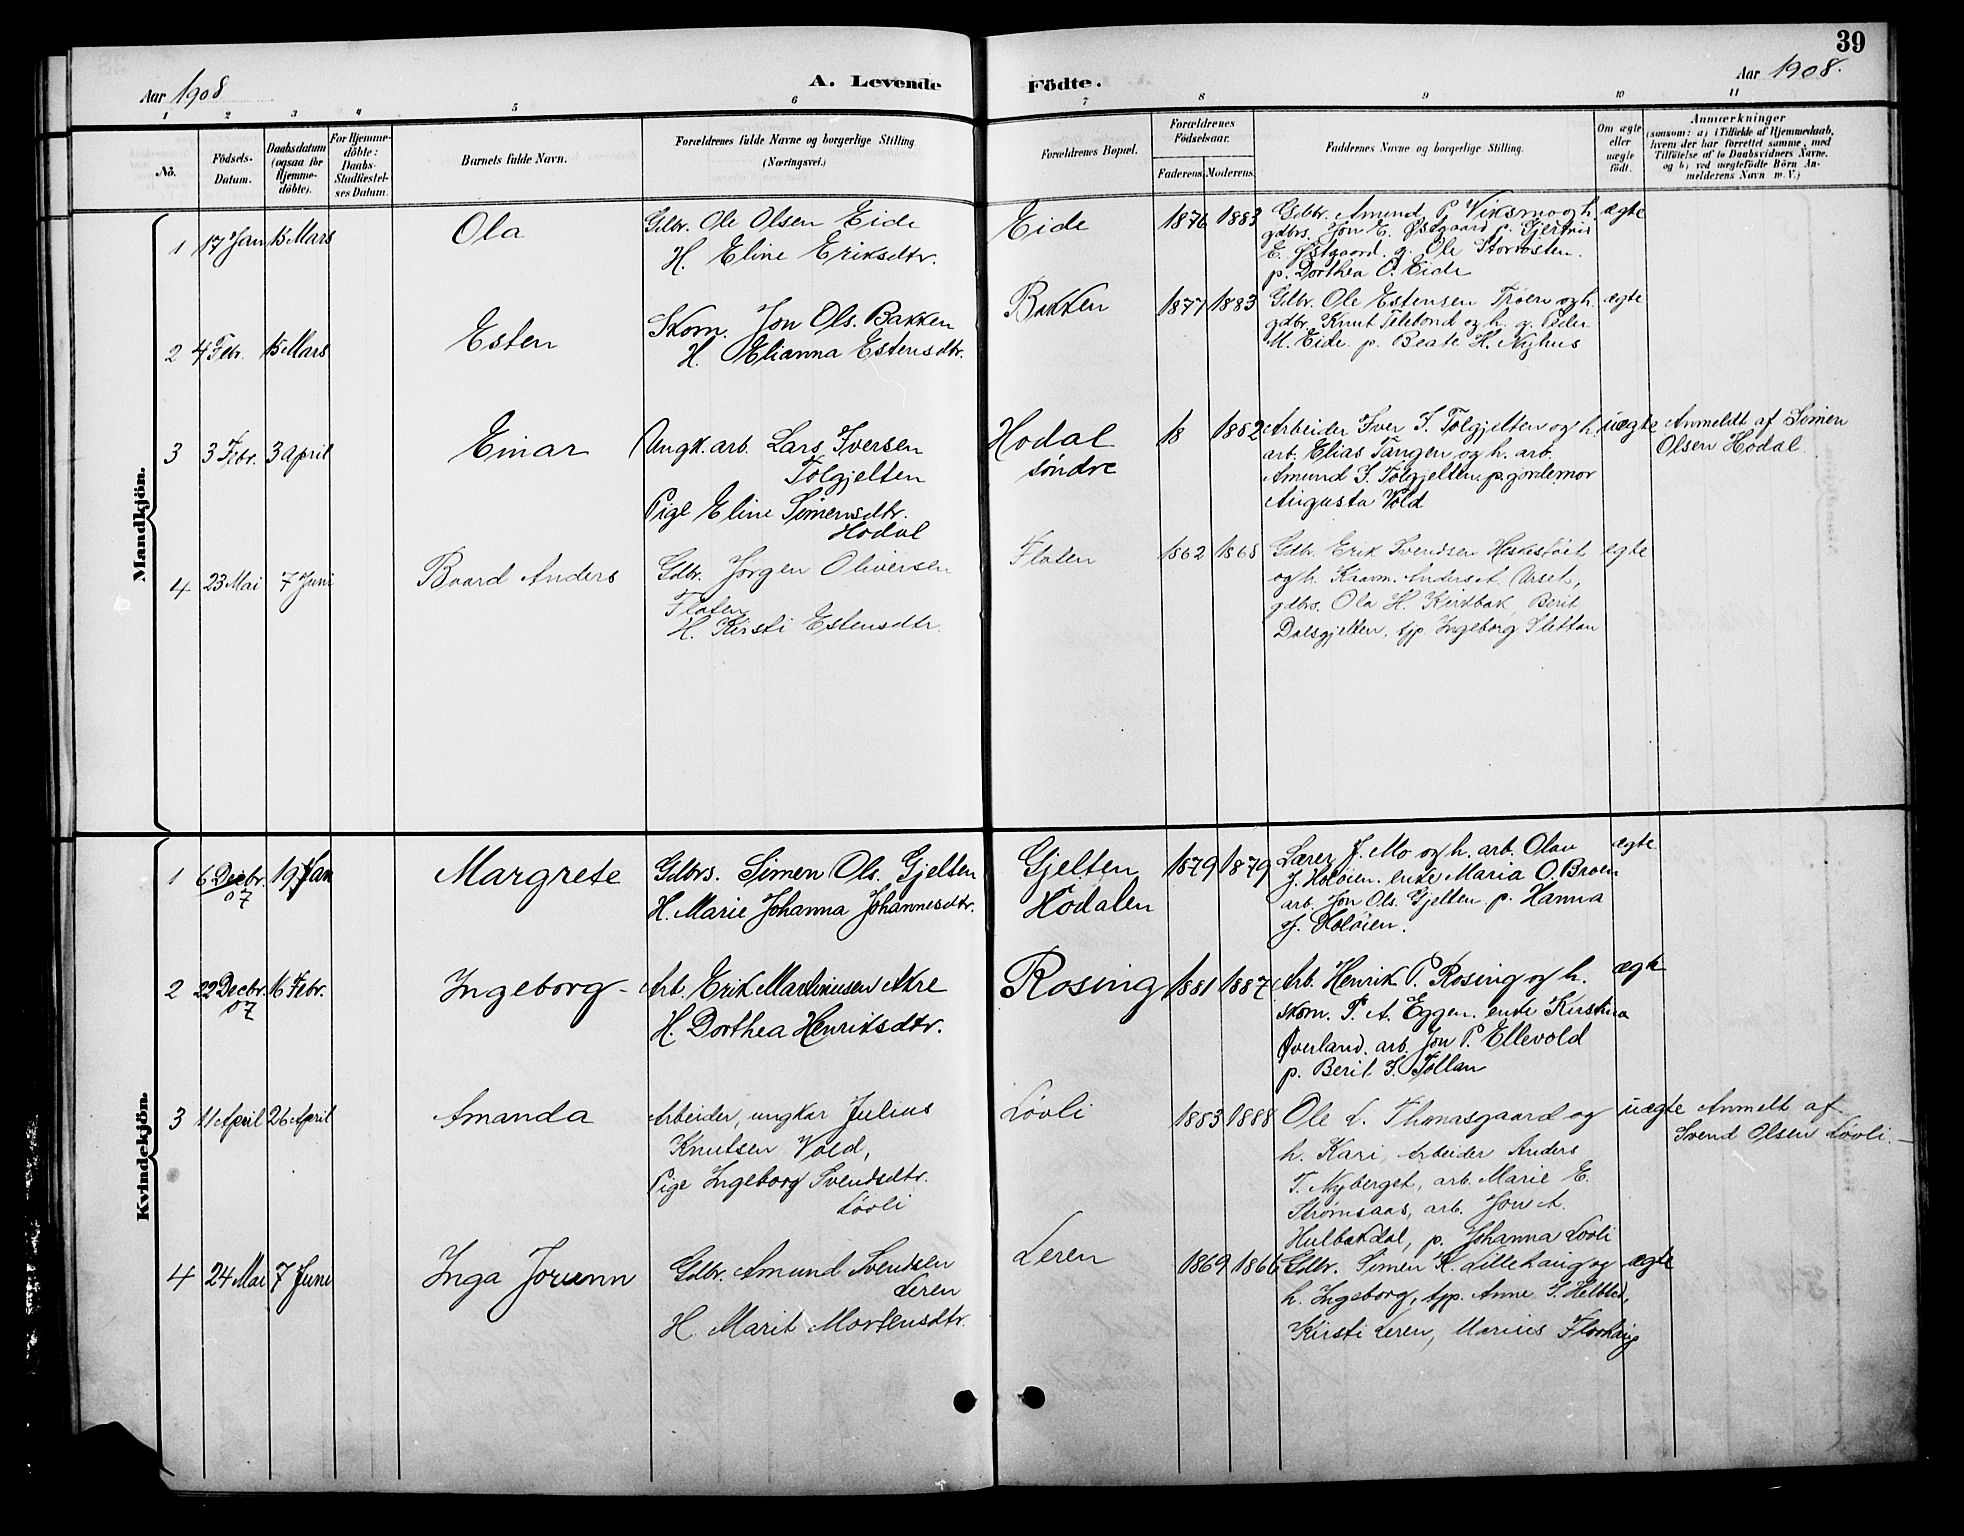 39
Aar 1908
A. Levende Födte.
Aar 1908.
1 2 3 4 5 6 7 8 9 10 11
No.
Födsels-
Datum.
Daabsdatum
(ogsaa for
Hjemme-
döbte).
For Hjemme-
döbte:
Daabs-
Stadfæstel-
ses Datum.
Barnets fulde Navn.
Forældrenes fulde Navne og borgerlige Stilling
(Næringsvei.)
Forældrenes Bopæl.
Forældrenes
Födselsaar.
Faderens. Moderens.
Faddernes Navne og borgerlige Stilling.
Om ægte
eller
uægte
födt.
Anmærkninger
(saasom: a) i Tilfælde af Hjemmedaab,
hvem der har forrettet samme, med
Tilföielse af to Daabsvidners Navne,
og b) ved uægtefödte Börn An-
melderens Navn m. V.)
Mandkjön.
1 17 Jan 15 Mars Ola
Gdbr. Ole Olsen Eide
H. Eline Eriksdtr.
Eide 1876 1883
Gdbr. Amund P. Viksmo og h.
gdbrs. Jon E. Østgaard p. Gjertrud
E. Østgaard. g. Ole Storrøsten.
p. Dorthea O. Eide
ægte
2 4 Febr. 15 Mars Esten
Skom. Jon Ols. Bakken
H. Elianna Estensdtr.
Bakken 1877 1883
Gdbr. Ole Estensen Trøen og h.
gdbr. Knut Telebond og h. g. Peder
M. Eide p. Beate H. Nyhus
ægte
3 3 Febr. 3 april Einar
Ungk. arb. Lars Iversen
Tolgjelten
Pige Eline Simensdtr.
Hodal
Hodal
søndre
18 1882
Arbeider Iver I. Tolgjelten og h.
arb. Elias Tangen og h. arb.
Amund I. Tolgjelten. p. gjordemor
Augusta Vold
uægte
Anmeldt af Simen
Olsen Hodal.
4 23 Mai 7 Juni Baard Anders
Gdbr. Jørgen Oliversen
Floten
H. Kirsti Estensdtr.
Floten 1862 1868
Gdbr. Erik Svendsen
og h. Kaavm. Anders A. Urset,
gdbrs. Ola H. Kirkbak, Berit
Dalsgjelten, tjp. Ingeborg Slettan
ægte
Kvindekjön.
1 6 Decbr. 07 19 Jan Margrete
Gdbrs. Simen Ols. Gjelten
H. Marie Johanna Johannesdtr.
Gjelten
Hodalen
1879 1879
Lærer J. Mo og h. arb. Olau
J. Holøien. enke Maria O. Broen
arb. Jon Ols. Gjelten p. Hanna
J. Holøien.
ægte
2 22 Decbr. 07 16 Febr. Ingeborg
Arb. Erik Martinusen Akre
H. Dorthea Henriksdtr.
Rosing 1881 1887
Arb. Henrik P. Rosing og h.
skom. P. A. Eggen. enke Kirstina
Øverland. arb. Jon P. Ellevold
p. Berit I. Tollan
ægte
3 11 April 26 April Amanda
Arbeider, ungkar Julius
Knutsen Vold,
Pige Ingeborg Svendsdtr.
Løvli
Løvli 1883 1888
Ole L. Thomasgaard og
h. Kari, Arbeider Anders
T. Nyberget, arb. Marie E.
Strømsaas, arb. Jon A.
Hulbakdal, p. Johanna Løvli
uægte
Anmelt af
Svend Olsen Løvli.
4 24 Mai 7 Juni Inga Jorunn
Gdbr. Amund Svendsen
Leren
H. Marit Mortensdtr.
Leren 1869 1866
Gdbr. Simen K. Lillehaug og
h. Ingeborg, tjp. Anne I.
Kirsti Leren, Marius
ægte